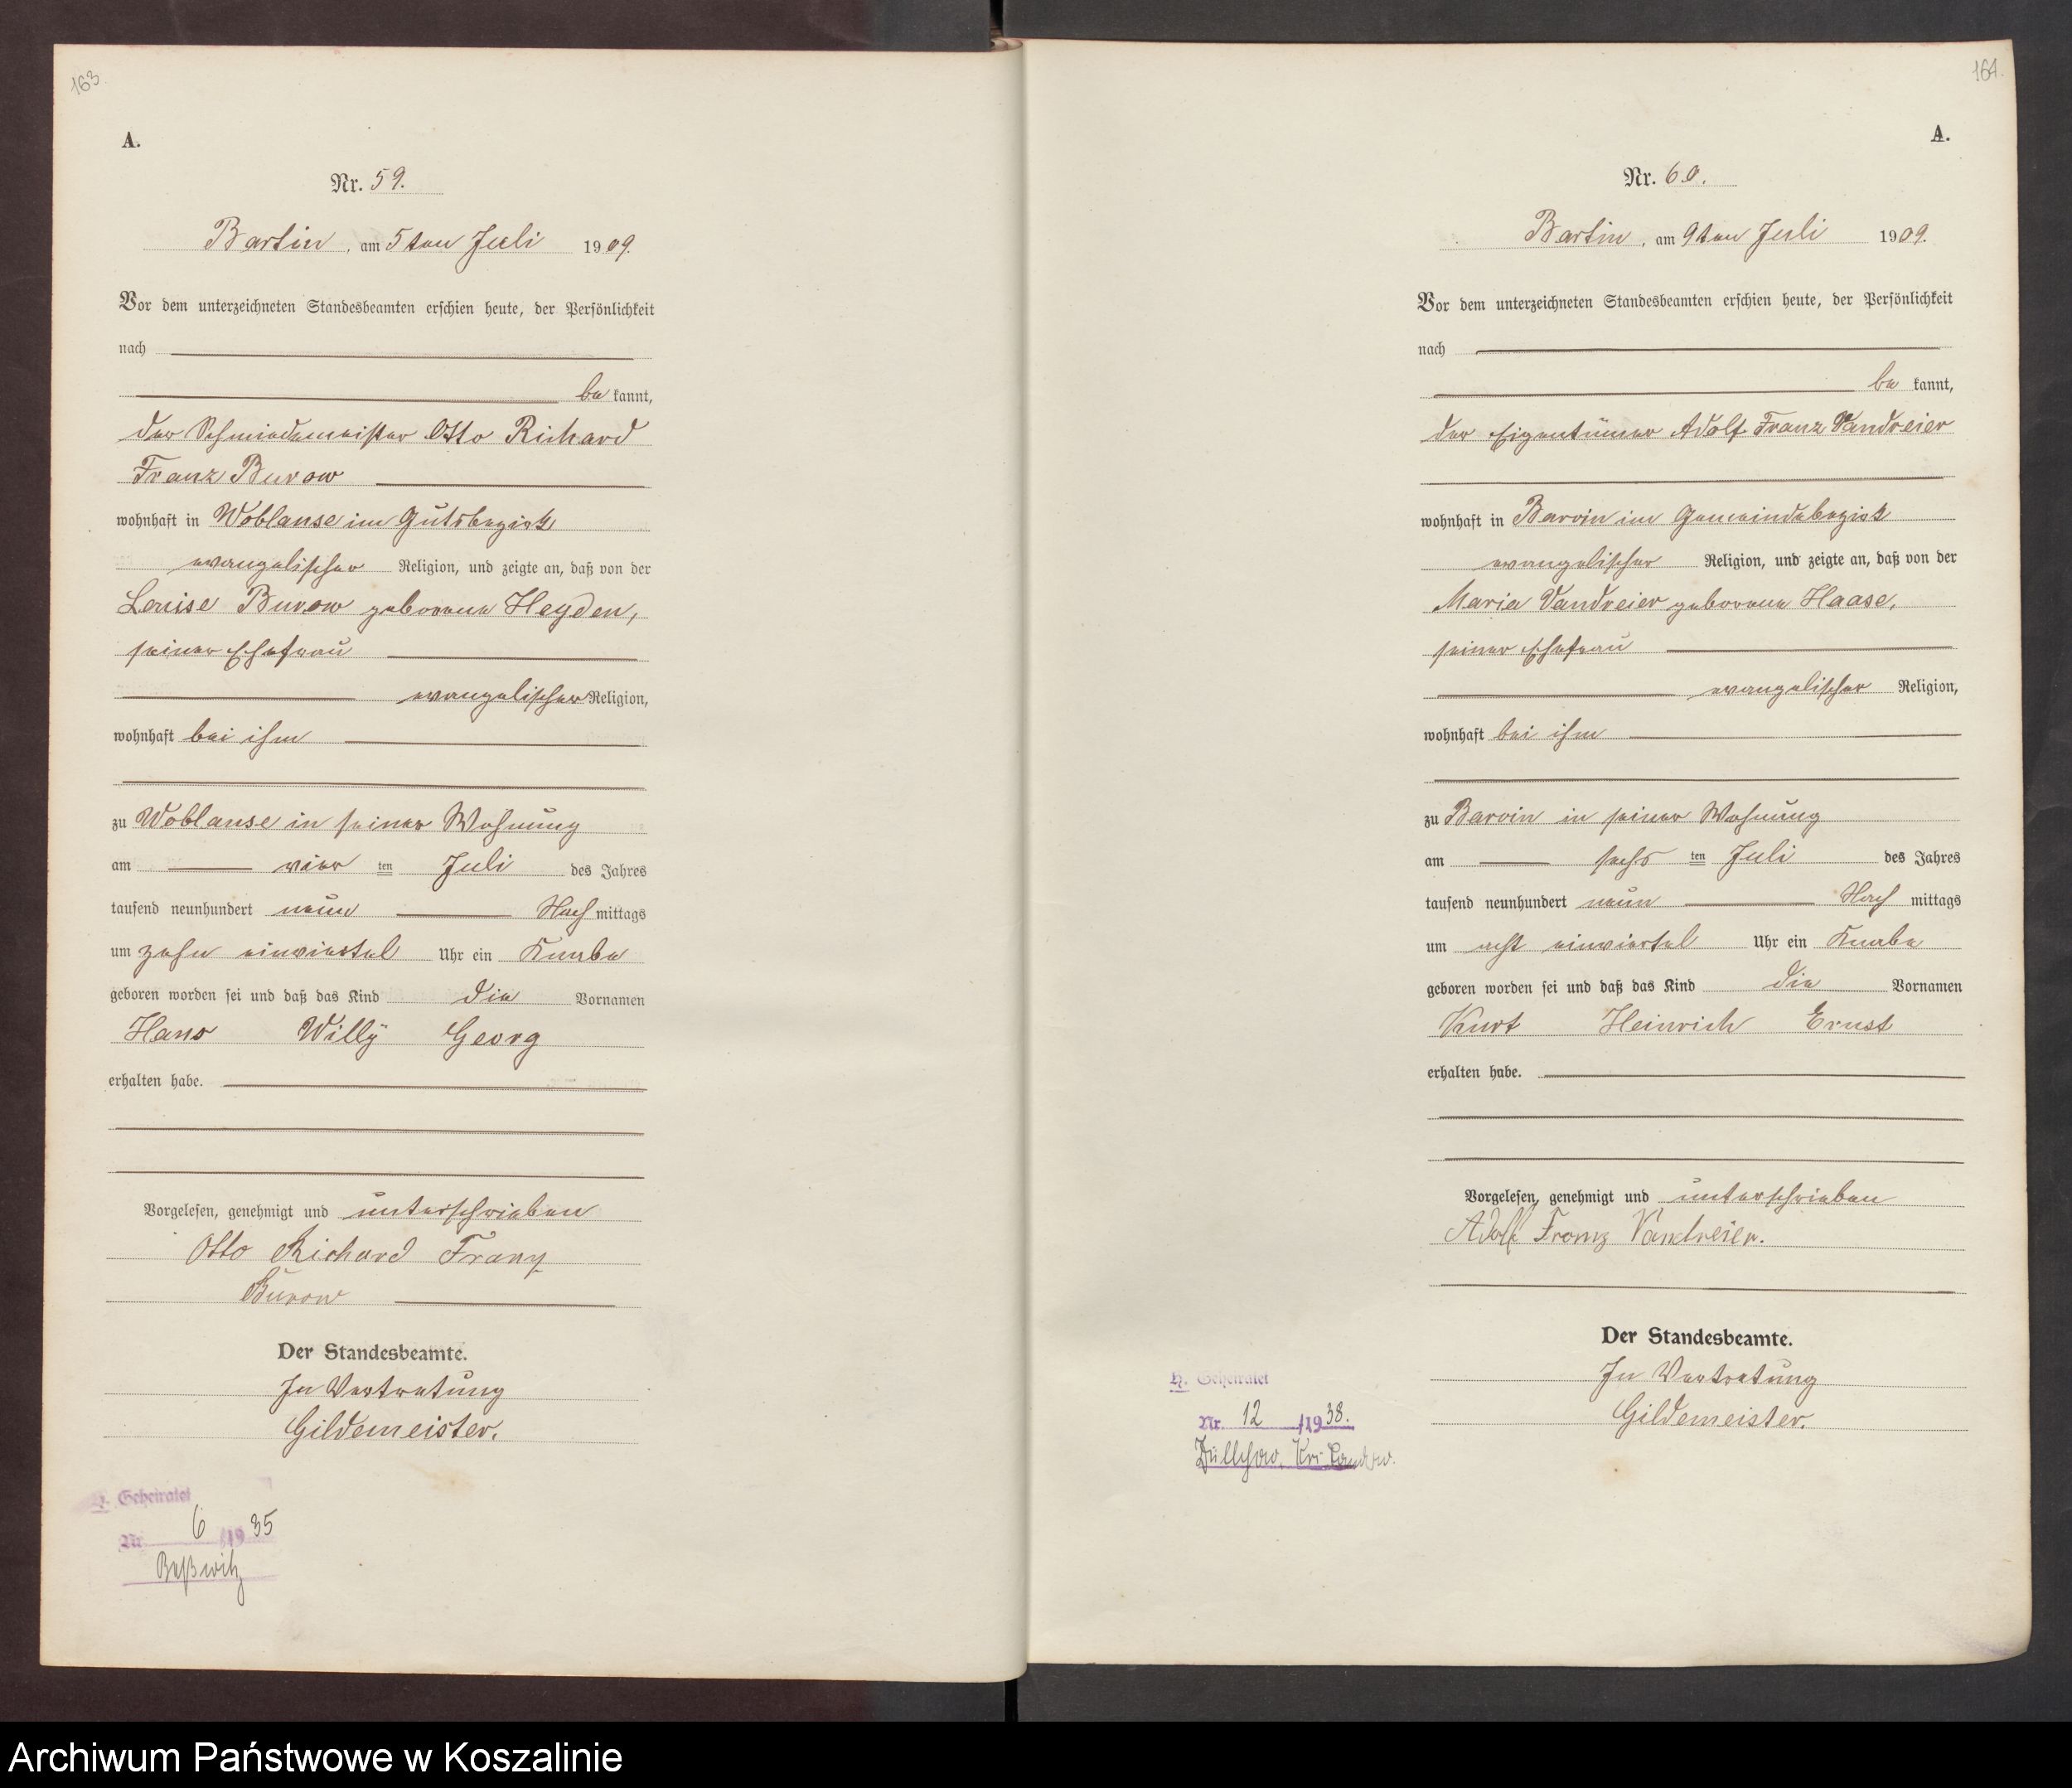 163.
A.
Nr. 59.
Bartin, am 5ten Juli 1909.
Vor dem unterzeichneten Standesbeamten erschien heute, der Persönlichkeit
nach
be kannt,
der Schmiedemeister Otto Richard
Franz Burow
wohnhaft in Woblanse im Gutsbezirk
evangelischer Religion, und zeigte an, daß von der
Louise Burow geborene Heyden,
seiner Ehefrau
evangelischer Religion,
wohnhaft bei ihm
zu Woblanse in seiner Wohnung
am vier ten Juli des Jahres
tausend neunhundert neun Nach mittags
um zehn einviertel Uhr ein Knabe
geboren worden sei und daß das Kind die Vornamen
Hans Willÿ Georg
erhalten habe.
Vorgelesen, genehmigt und unterschrieben
Otto Richard Franz
Burow
Der Standesbeamte.
In Vertretung
Gildemeister.
Geheiratet
Nr. 6 /19 35
Beßwitz
164.
A.
Nr. 60.
Bartin, am 9ten Juli 1909.
Vor dem unterzeichneten Standesbeamten erschien heute, der Persönlichkeit
nach
be kannt,
der Eigentümer Adolf Franz Vandreier
wohnhaft in Barvin im Gemeindebezirk
evangelischer Religion, und zeigte an, daß von der
Maria Vandreier geborene Haase,
seiner Ehefrau
evangelischer Religion,
wohnhaft bei ihm
zu Barvin in seiner Wohnung
am sechs ten Juli des Jahres
tausend neunhundert neun Nach mittags
um acht einviertel Uhr ein Knabe
geboren worden sei und daß das Kind die Vornamen
Kurt Heinrich Ernst
erhalten habe.
Vorgelesen, genehmigt und unterschrieben
Adolf Franz Vandreier.
Der Standesbeamte.
In Vertretung
Gildemeister.
Geheiratet
Nr. 12 /19 38.
Züllchow
Archiwum Państwowe w Koszalinie